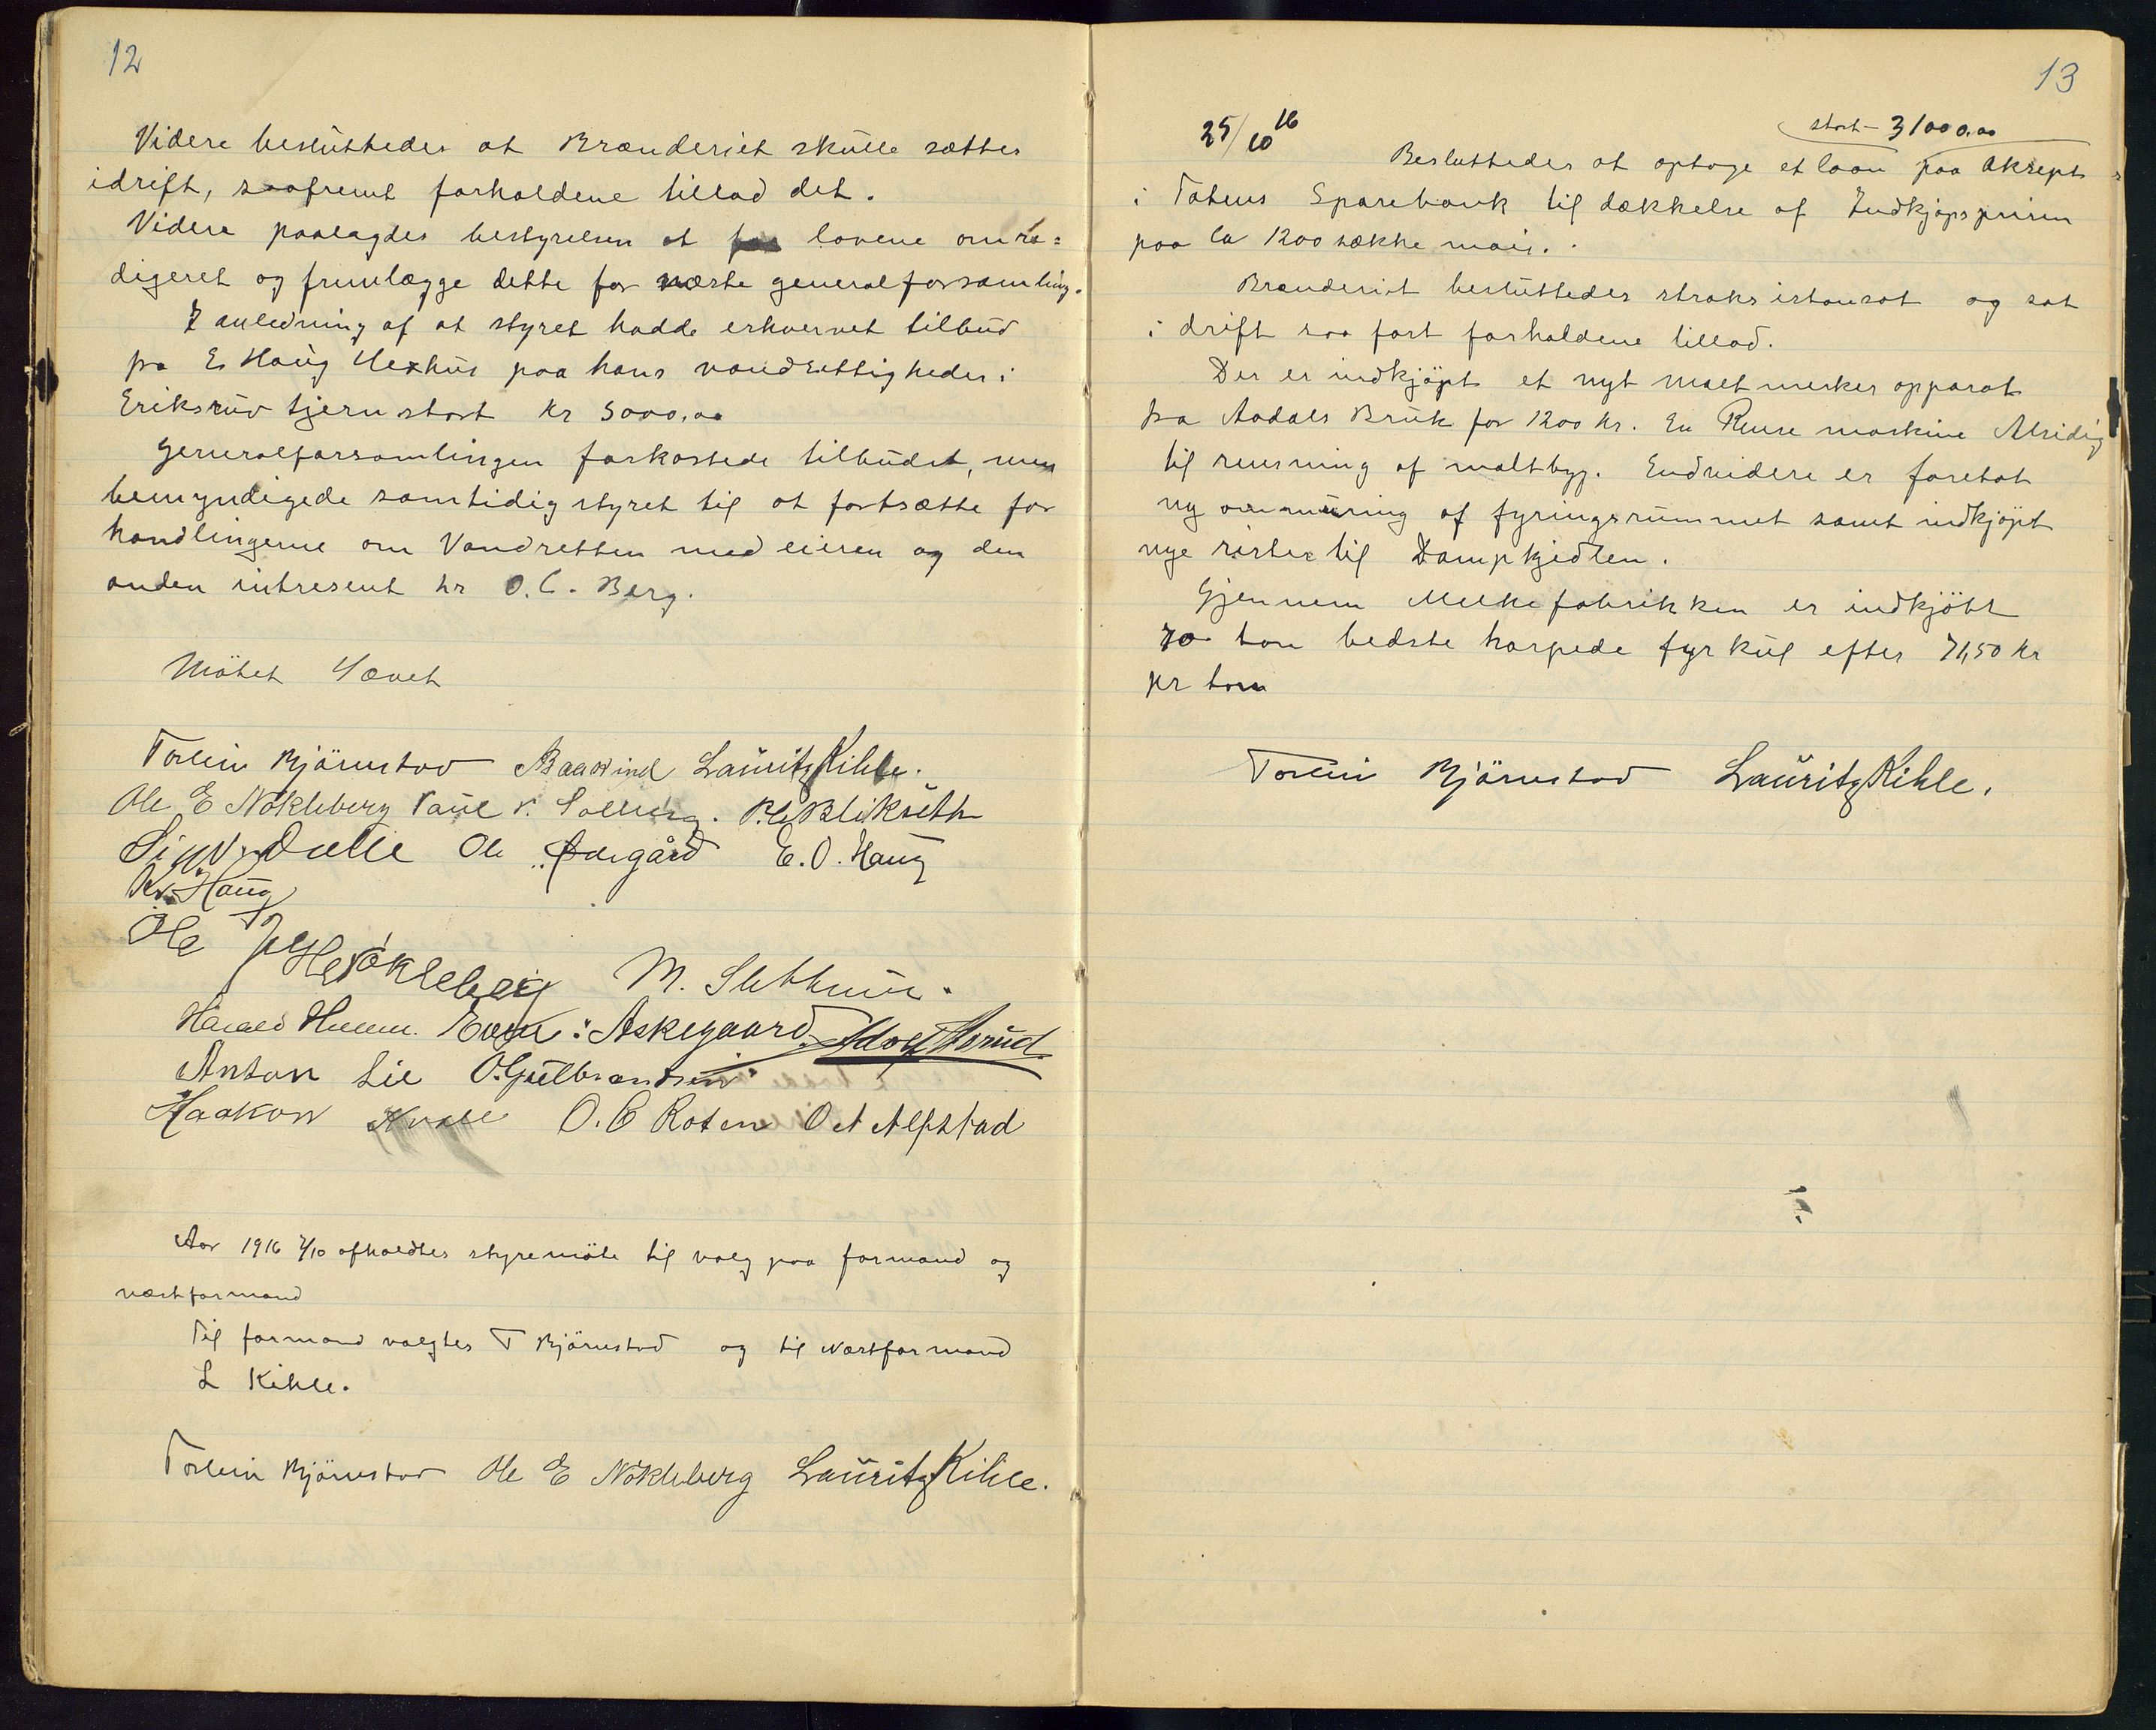 12
Videre besluttedes at Brænderiet skulle sættes
idrift, saafremt forholdene tillod det.
Videre paalagdes bestyrelsen at faa lovene omre=
digeret og fremlægge dette for næste generalforsamling.
I anledning af at styret hadde erhvervet tilbud
fra E Haug Hexhus paa hans vandrettigheder i
Eriksrud tjern stort Kr 5000,00
Generalforsamlingen forkastede tilbudet, men
bemyndigede samtidig styret til at fortsætte for
handlingerne om Vandretten med eieren og den
anden intresent hr O. C. Berg.
Mötet Hævet
Torlein Björnstad A Baawind Lauritz Kihle.
Ole E Nökleberg Paul P. Solberg. P. C. Blikseth
Sigv. Dalle Ole Ødegård E. O. Haug
Kr. Haug
Ole J Nökleberg M. Slethuus.
Harald Askegaard. Adolf
Anton Lie O. Gulbrandsen
Haakon O. C Roten O A Alfstad
Aar 1916 7/10 afholdtes styremöte til valg paa formand og
næstformand
Til formand valgtes T Björnstad og til Næstformand
L Kihle.
Torlein Björnstad Ole E Nökleberg Lauritz Kihle.
13
25/10 16
stort 31000,00
Besluttedes at optage et laan paa Aksept
i Totens Sparebank til dækkelse af Indkjöpsprisen
paa ca 1200 sække mais.
Brænderiet besluttedes straks istansat og sat
i drift saa fort forholdene tillod.
Der er indkjöpt et nyt malt mesker apparat
fra Aadals Bruk for 1200 Kr. En Rense maskine Alsidig
til rensning af maltbyg. Endvidere er foretat
ny ommuring af fyringsrummet samt indkjöpt
nye rister til Dampkjedlen.
Gjennem Melkefabrikken er indkjöbt
70 ton bedste harpede fyrkul efter 71,50 Kr
pr ton
Torlein Björnstad Lauritz Kihle.